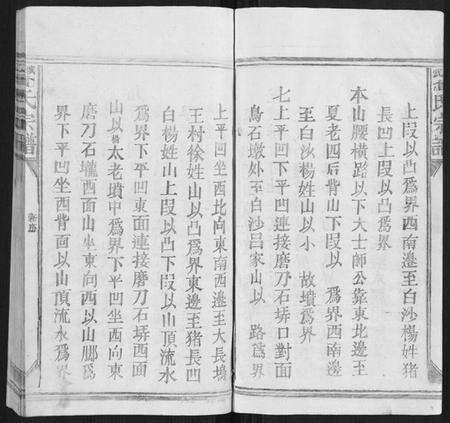 上段以凸爲界西南邊至白沙楊姓猪
長凹上段以凸爲界
本山腰橫路以下大士師公靠東北邊至
夏老四后背山下段以　爲界西南邊
至白沙楊姓山以小　故墳爲界
七上平凹下平凹連接磨刀石塝口對面
鳥石墩外至白沙呂家山以　路爲界
上平凹坐西北向東南西邊至大長塢
王村徐姓山以凸爲界東邊至猪長凹
白楊姓山上段以凸下段以山頂流水
爲界下平凹東面連接磨刀石塝西面
山以 太老墳中爲界下平凹坐西向東
磨刀石壠西面山坐東向西以山脚爲
界下平凹坐西背面以山頂流水爲界
氏宗譜